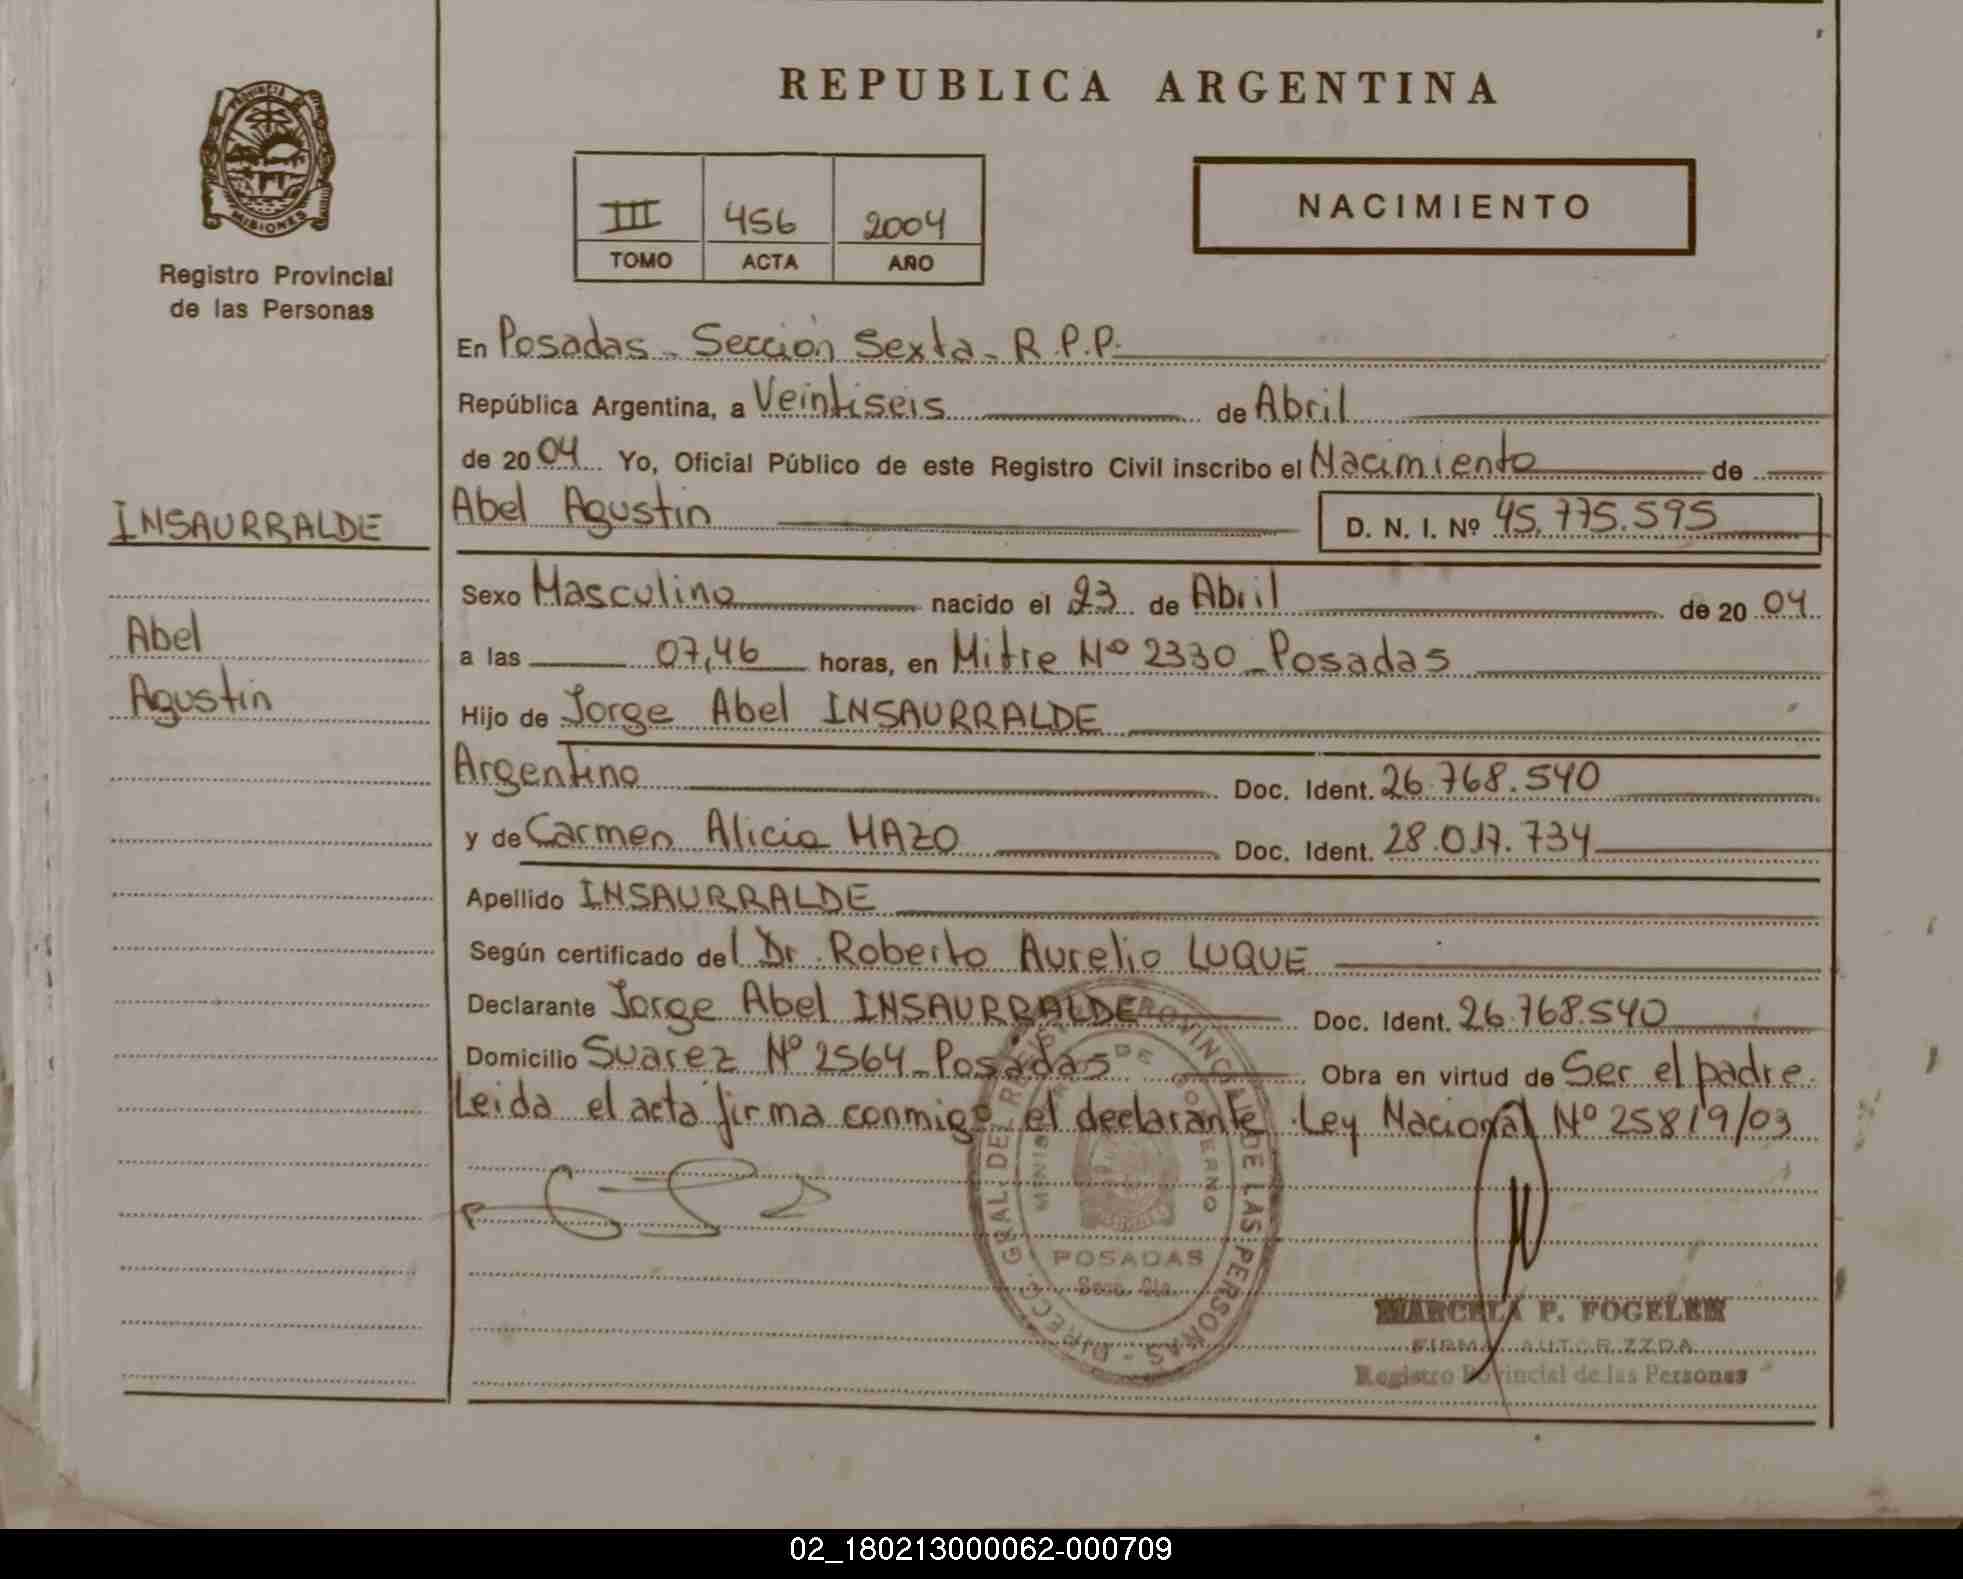 REPUBLICA ARGENTINA
PROVINCIA
MISIONES
Registro Provincial
de las Personas
III 456 2004
TOMO ACTA AÑO
NACIMIENTO
En Posadas - Sección Sexta - R.P.P.
República Argentina, a Veintiseis de Abril
de 2004 Yo, Oficial Público de este Registro Civil inscribo el Nacimiento de
INSAURRALDE
Abel Agustin D. N. I. Nº 45.775.595
Sexo Masculino nacido el 23 de Abril de 2004
Abel
a las 07,46 horas, en Mitre Nº 2330 - Posadas
Agustin
Hijo de Jorge Abel INSAURRALDE
Argentino Doc. Ident. 26.768.540
y de Carmen Alicia MAZO Doc. Ident. 28.017.734
Apellido INSAURRALDE
Según certificado del Dr. Roberto Aurelio LUQUE
Declarante Jorge Abel INSAURRALDE Doc. Ident. 26.768.540
Domicilio Suarez Nº 2564 - Posadas Obra en virtud de Ser el padre.
Leida el acta firma conmigo el declarante. Ley Nacional Nº 25819/03
DIRECC. GRAL. DEL REG. PROVINCIAL DE LAS PERSONAS
DE GOBIERNO
POSADAS
MARCELA P. FOGELER
FIRMA AUTORIZZDA
Registro Provincial de las Personas
02_180213000062-000709